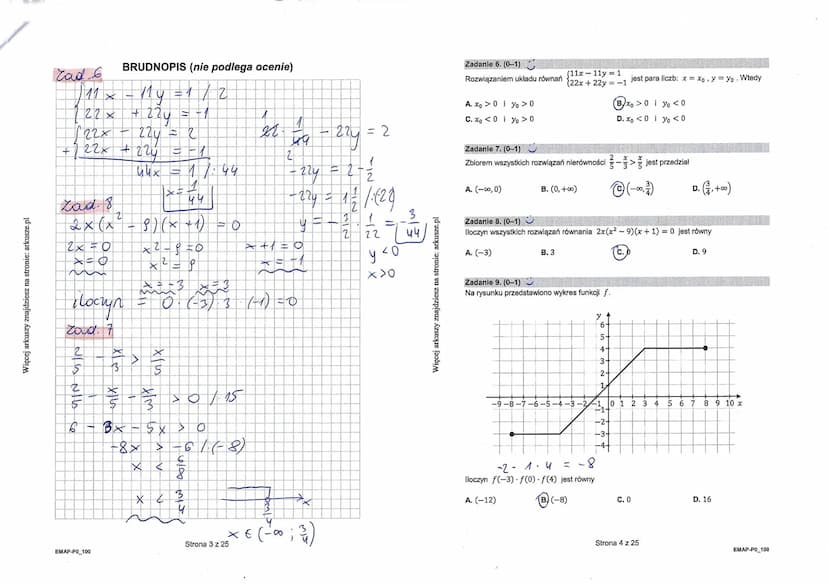 BRUDNOPIS (nie podlega ocenie)
Zad. 6
11x - 11y = 1 / 2
22x + 22y = -1
22x - 22y = 2
+ 22x + 22y = -1
44x = 1 / : 44
x = 1/44
22 · 1/44 - 22y = 2
-22y = 2 - 1/2
-22y = 1 1/2 / : (22)
y = - 3/2 · 1/22 = -3/44
y < 0
x > 0
Zad. 8
2x(x² - 9)(x + 1) = 0
2x = 0 x² - 9 = 0 x + 1 = 0
x = 0 x² = 9 x = -1
x = -3 x = 3
iloczyn = 0 · (-3) · 3 · (-1) = 0
Zad. 7
2/5 - x/3 > x/5
2/5 - x/5 - x/3 > 0 / 15
6 - 3x - 5x > 0
-8x > -6 / · (-8)
x < 6/8
x < 3/4
3/4 x
x ∈ (-∞ ; 3/4)
Strona 3 z 25
EMAP-P0_100
Więcej arkuszy znajdziesz na stronie: arkusze.pl
Więcej arkuszy znajdziesz na stronie: arkusze.pl
Zadanie 6. (0–1)
Rozwiązaniem układu równań {11x − 11y = 1 22x + 22y = −1 jest para liczb: x = x₀ , y = y₀ . Wtedy
A. x₀ > 0 i y₀ > 0 B. x₀ > 0 i y₀ < 0
C. x₀ < 0 i y₀ > 0 D. x₀ < 0 i y₀ < 0
Zadanie 7. (0–1)
Zbiorem wszystkich rozwiązań nierówności 2/5 − x/3 > x/5 jest przedział
A. (−∞, 0) B. (0, +∞) C. (−∞, 3/4) D. (3/4, +∞)
Zadanie 8. (0–1)
Iloczyn wszystkich rozwiązań równania 2x(x² − 9)(x + 1) = 0 jest równy
A. (−3) B. 3 C. 0 D. 9
Zadanie 9. (0–1)
Na rysunku przedstawiono wykres funkcji f.
y
6
5
4
3
2
1
−9 −8 −7 −6 −5 −4 −3 −2 −1 0 1 2 3 4 5 6 7 8 9 10 x
−1
−2
−3
−4
-2 · 1 · 4 = -8
Iloczyn f(−3) · f(0) · f(4) jest równy
A. (−12) B. (−8) C. 0 D. 16
Strona 4 z 25
EMAP-P0_100